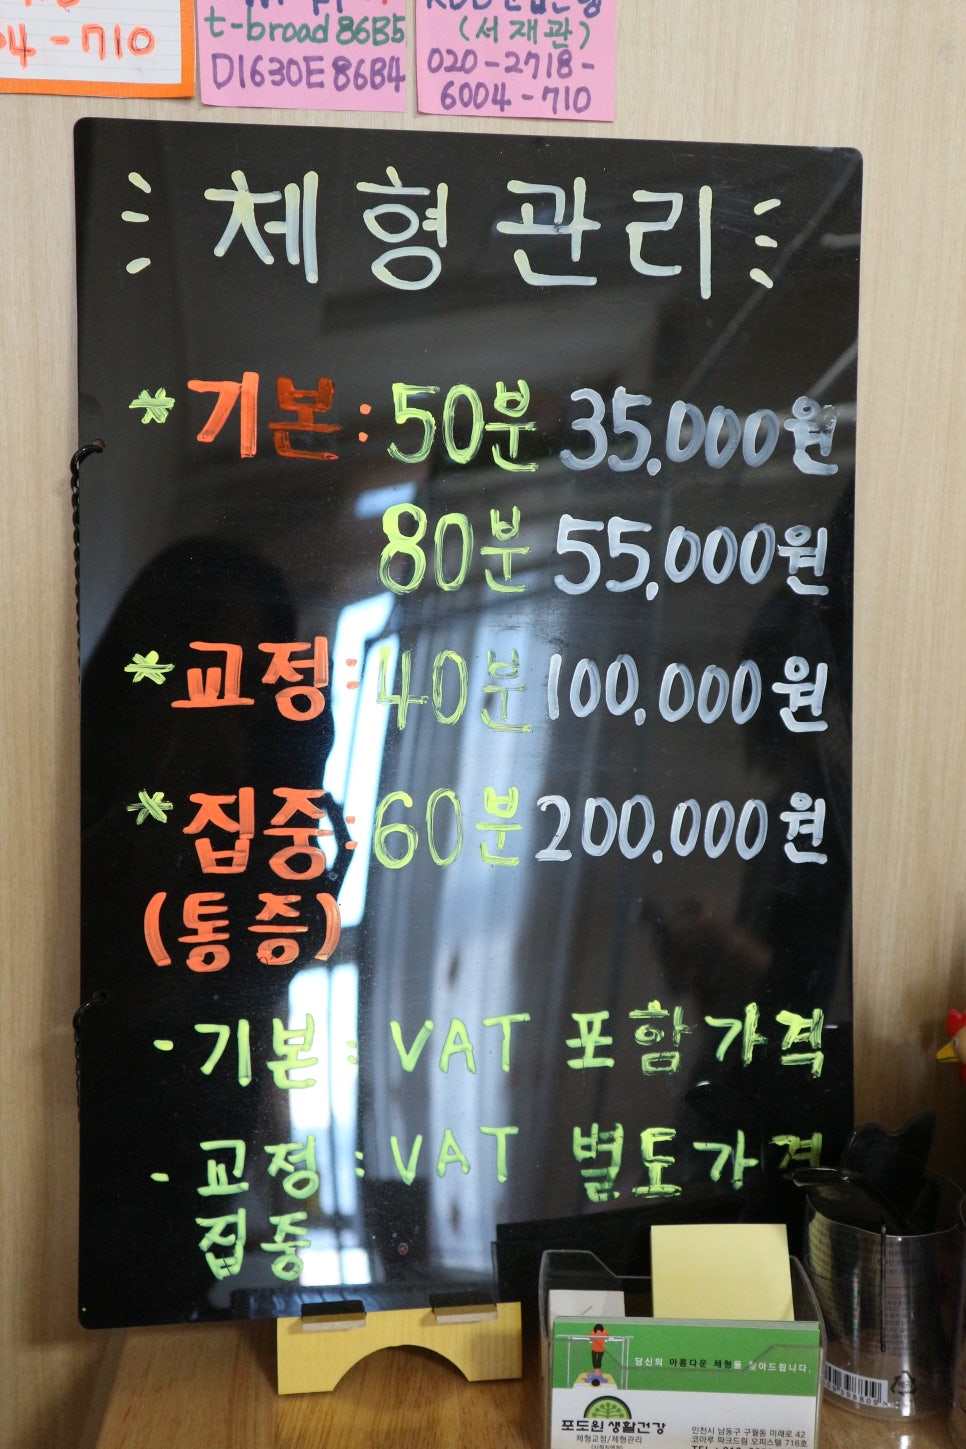 4-710
t-broad 86B5
D1630E86B4
(서재관)
020-2718-
6004-710
체형관리
* 기본: 50분 35,000원
80분 55,000원
* 교정: 40분 100,000원
* 집중: 60분 200,000원
(통증)
- 기본: VAT 포함가격
- 교정 : VAT 별도가격
집중
당신의 아름다운 체형을 찾아드립니다.
포도원생활건강
체형교정/체형관리
인천시 남동구 구월동 미래로 42
코아루 파크드림 오피스텔 716호